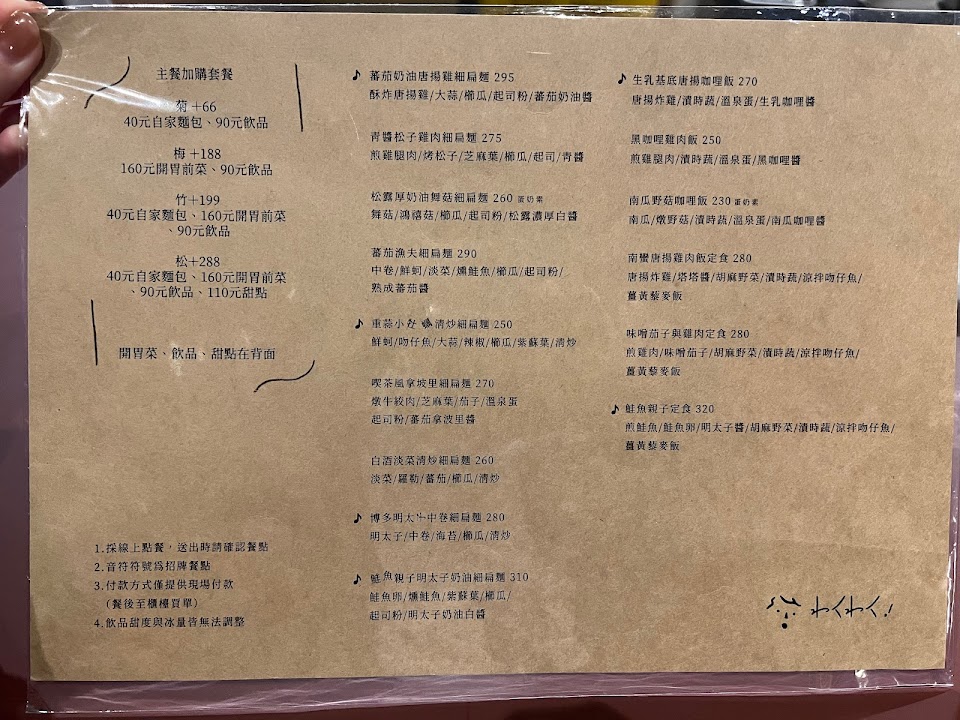 主餐加購套餐
菊 +66
40元自家麵包、90元飲品
梅 +188
160元開胃前菜、90元飲品
竹+199
40元自家麵包、160元開胃前菜
、90元飲品
松+288
40元自家麵包、160元開胃前菜
、90元飲品、110元甜點
開胃菜、飲品、甜點在背面
1.採線上點餐，送出時請確認餐點
2.音符符號為招牌餐點
3.付款方式僅提供現場付款
（餐後至櫃檯買單）
4.飲品甜度與冰量皆無法調整
♪ 蕃茄奶油唐揚雞細扁麵 295
酥炸唐揚雞/大蒜/櫛瓜/起司粉/蕃茄奶油醬
青醬松子雞肉細扁麵 275
煎雞腿肉/烤松子/芝麻葉/櫛瓜/起司/青醬
松露厚奶油舞菇細扁麵 260 蛋奶素
舞菇/鴻禧菇/櫛瓜/起司粉/松露濃厚白醬
蕃茄漁夫細扁麵 290
中卷/鮮蚵/淡菜/燻鮭魚/櫛瓜/起司粉/
熟成蕃茄醬
♪ 重蒜小 清炒細扁麵 250
鮮蚵/吻仔魚/大蒜/辣椒/櫛瓜/紫蘇葉/清炒
喫茶風拿坡里細扁麵 270
燉牛絞肉/芝麻葉/茄子/溫泉蛋
起司粉/蕃茄拿波里醬
白酒淡菜清炒細扁麵 260
淡菜/羅勒/蕃茄/櫛瓜/清炒
♪ 博多明太子中卷細扁麵 280
明太子/中卷/海苔/櫛瓜/清炒
♪ 鮭魚親子明太子奶油細扁麵 310
鮭魚卵/燻鮭魚/紫蘇葉/櫛瓜/
起司粉/明太子奶油白醬
♪ 生乳基底唐揚咖哩飯 270
唐揚炸雞/漬時蔬/溫泉蛋/生乳咖哩醬
黑咖哩雞肉飯 250
煎雞腿肉/漬時蔬/溫泉蛋/黑咖哩醬
南瓜野菇咖哩飯 230 蛋奶素
南瓜/燉野菇/漬時蔬/溫泉蛋/南瓜咖哩醬
南蠻唐揚雞肉飯定食 280
唐揚炸雞/塔塔醬/胡麻野菜/漬時蔬/涼拌吻仔魚/
薑黃藜麥飯
味噌茄子與雞肉定食 280
煎雞肉/味噌茄子/胡麻野菜/漬時蔬/涼拌吻仔魚/
薑黃藜麥飯
♪ 鮭魚親子定食 320
煎鮭魚/鮭魚卵/明太子醬/胡麻野菜/漬時蔬/涼拌吻仔魚/
薑黃藜麥飯
わくわく